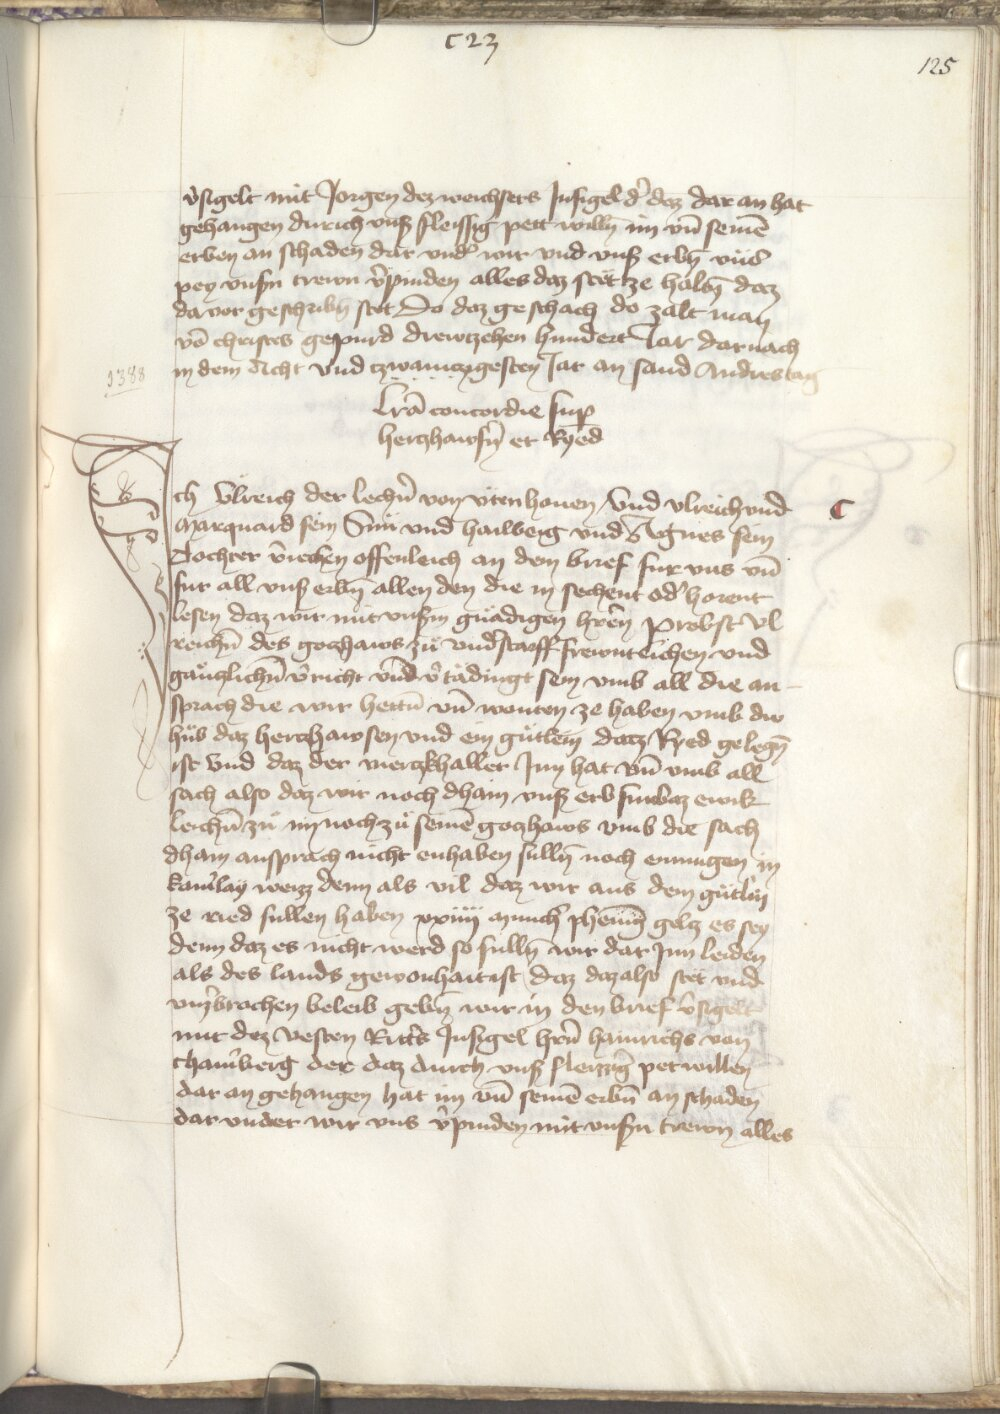 C 23
125
v̄sigelt mit Jorgen dez weichsers Jnsigel d͛ daz dar an hat
gehangen durich vnß fleissig pett willn̄ im vn̄ seinē
erben an schaden dar vnd͛ wir vnd vnß erbn̄ vns
pey vnsn̄ trewn v̄pinden alles daz stet ze haltn̄ daz
da vor geschribn̄ stet Do daz geschach do zalt man
vō christes gepurd drewtzehen hundert Jar darnach
in dem Acht vnd tzwainczgesten Jar an sand Andres tag
1388
Lrā concordie sup̄
herczhawsn̄ et Ryed
Ich Vlreich der lechn̄ von vtenhouen Vnd vlreich vnd
Marquard sein Sün vnd hailweig vnd Agnes sein
Tochter v̄iechen offenleich an dem brief fur vns vn̄
fur all vnß erbn̄ allen den die in sechent od͛ horent
lesen daz wir mit vnßm gnädigen hrēn Probst Vl
reichn̄ des goczhaws zu vnd͛storff frewntlichen vnd
gänczlichn̄ v̄richt vnd v̄tädingt sein vmb all die an-
sprach die wir hettn̄ vn̄ wonten ze haben vmb die
hůb daz herczhawsen vnd ein gütlein datz Ryed gelegn̄
ist Vnd daz der mertzkhaller Jnn hat vn̄ vmb all
sach also daz wir noch dhain vnß erb furbaz ewik
leichn̄ zü im noch zü seinē goczhaws vmb die sach
dham ansprach nicht enhaben sulln̄ noch enmugen in
kain̄lay weiz denn als vil daz wir aus dem gütlin
ze ried sullen haben xxiiij münch͛ phening gelcz es sey
denn daz es nicht werd so sulln̄ wir dar Jnn leiden
als des lands gewonhait ist daz daz also stet vnd
vnz͛brochen beleib gebn̄ wir in den brief v̄sigelt
mit dez Vesten Ritt͛s Jnsigel hrn̄ hainrichs von
Cham͛berg der daz durch vnß fleizzig͛ pet willen
dar an gehangen hat im vn̄ seinē erbn̄ an schaden
dar vnder wir vns v̄pinden mit vnßn trewn alles